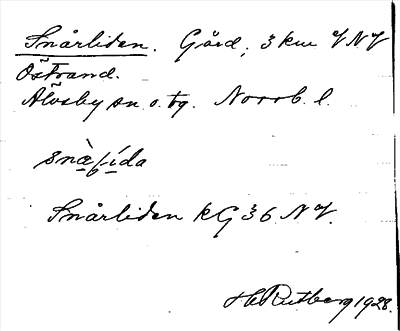 Snårliden. Gård, 3 km V N V
Östrand.
Älvsby sn o. tg. Norrb. l.
Snårliden kG 36 NV.
H. Rutberg 1928.